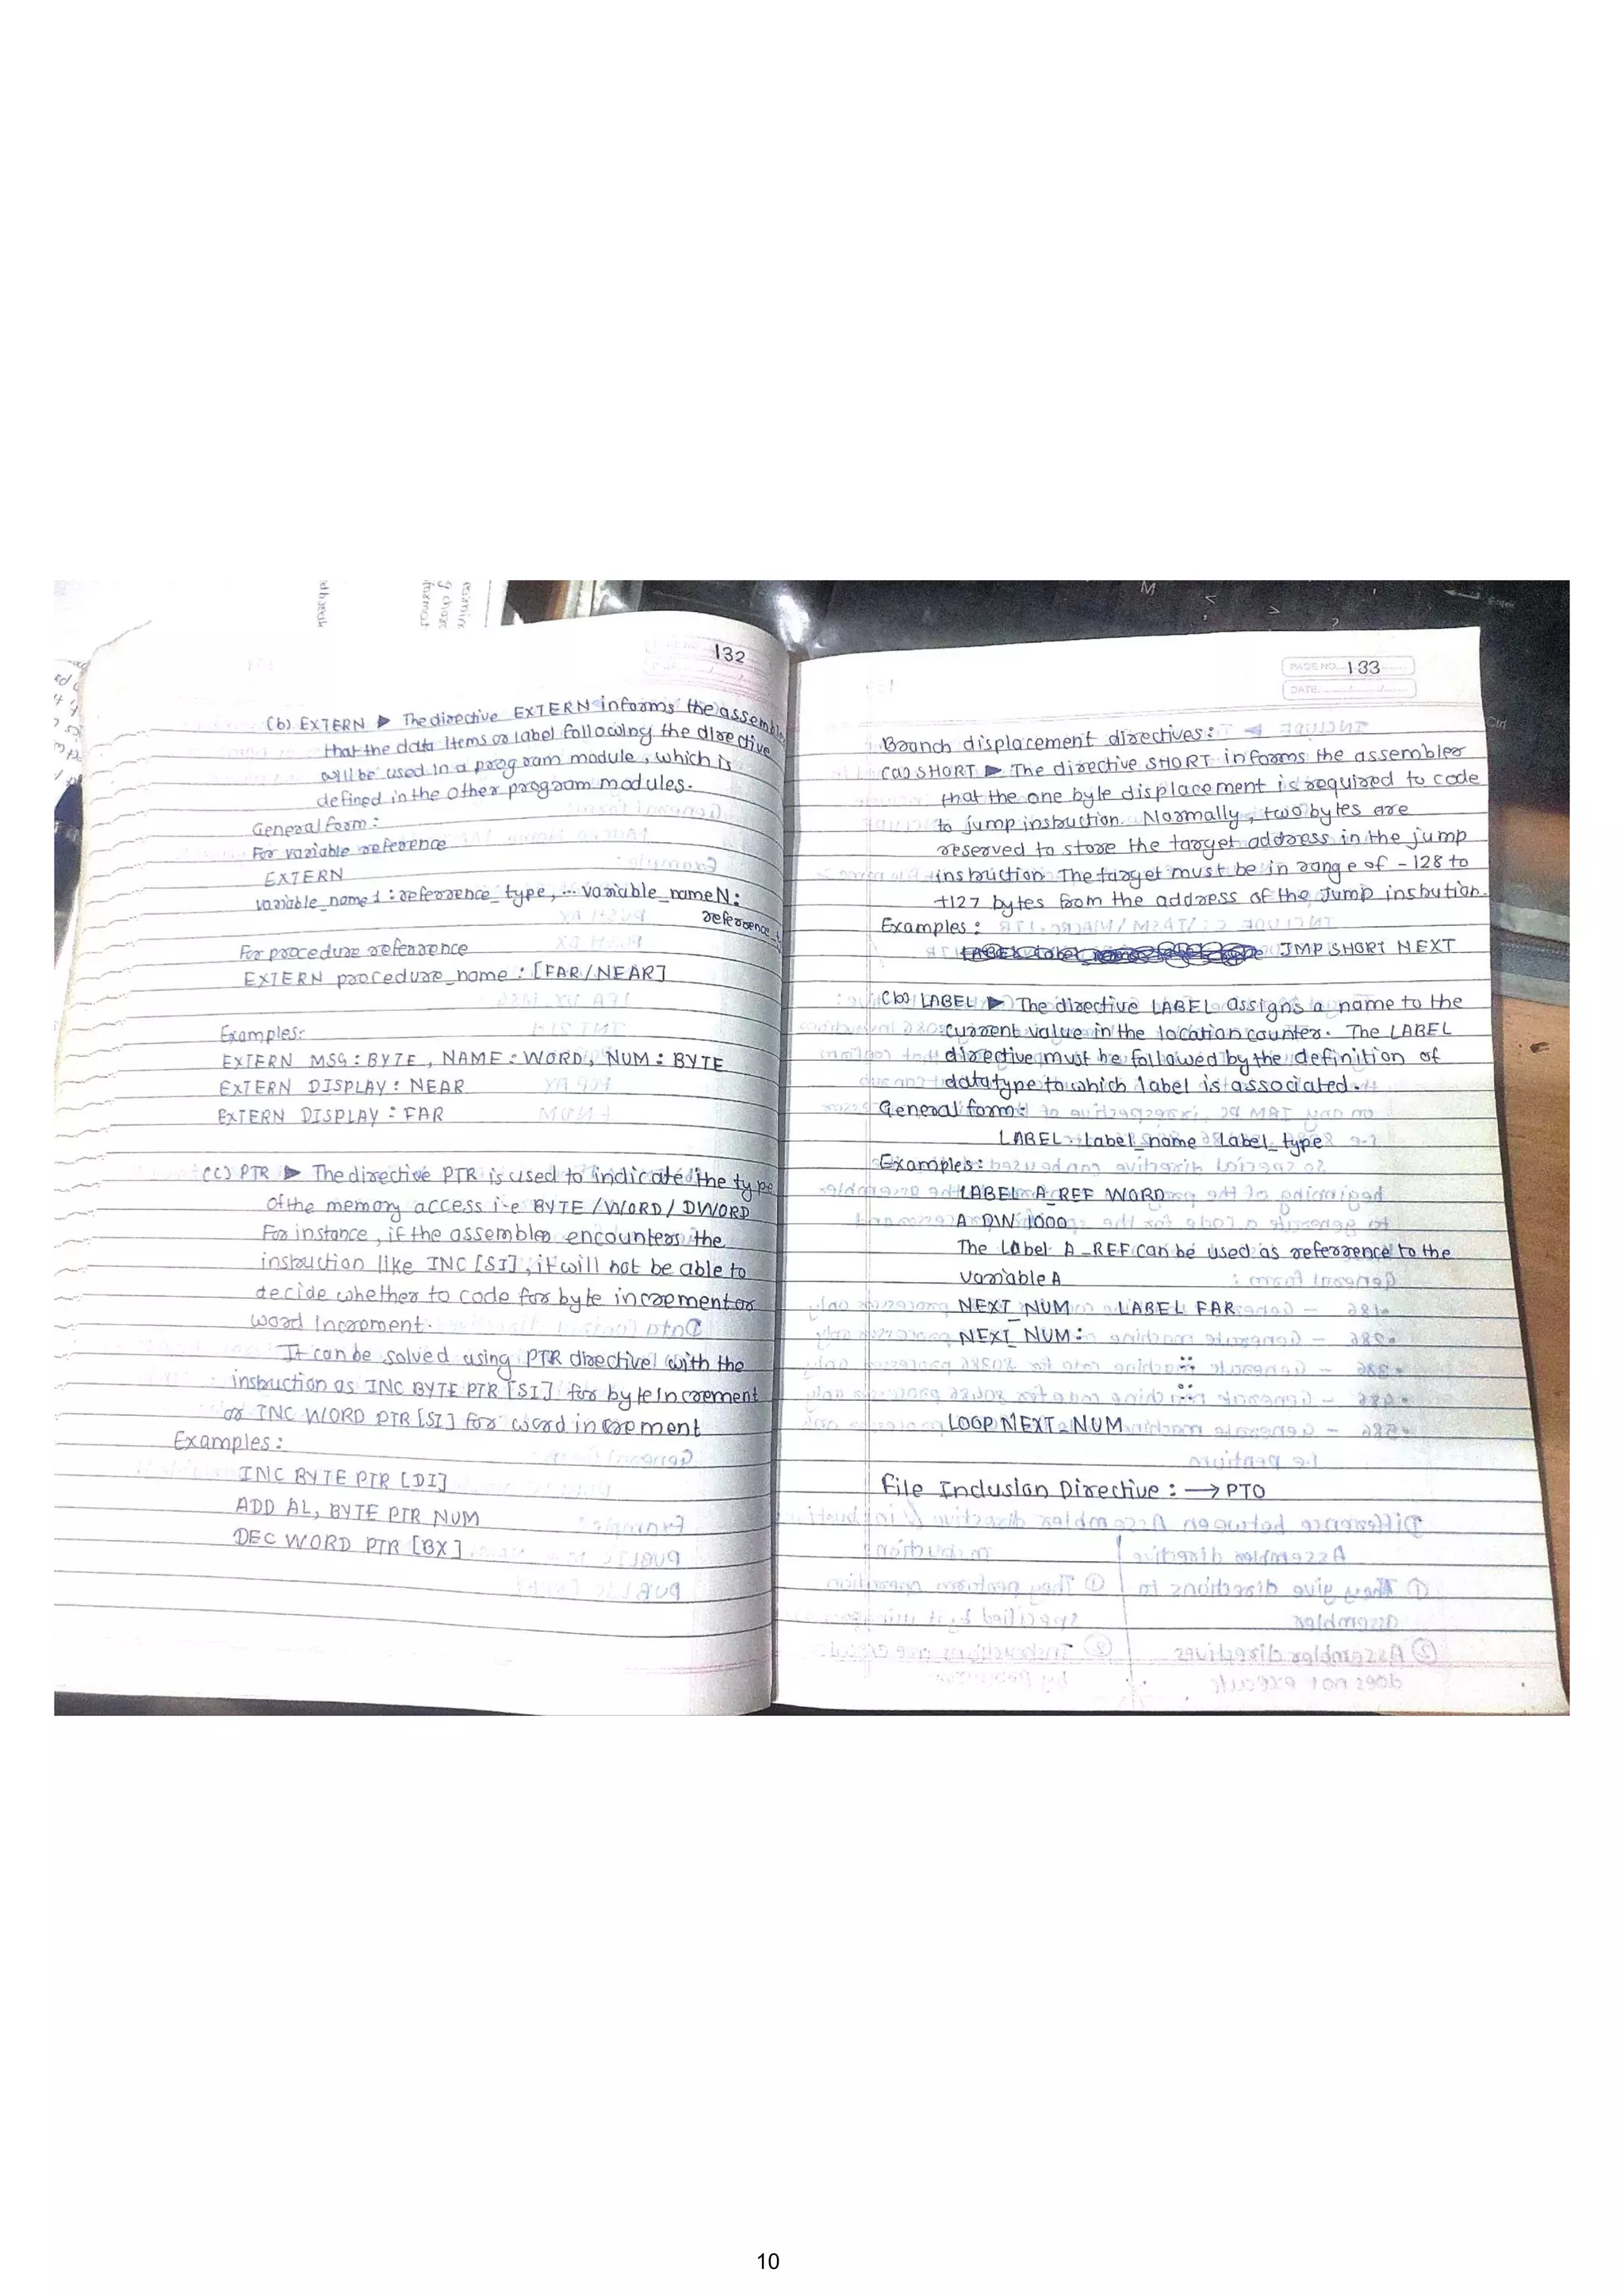 132
(b) EXTERN ▶ The directive EXTERN informs the assembler
that the data items or label following the directive
will be used in a program module, which is
defined in the other program modules.
General form:
For variable reference
EXTERN
variable_name1 : referrence_type, ... variable_nameN:
referrence_
For procedure referrence
EXTERN procedure_name : [FAR/NEAR]
Examples:
EXTERN MSG : BYTE, NAME : WORD, NUM : BYTE
EXTERN DISPLAY : NEAR
EXTERN DISPLAY : FAR
(c) PTR ▶ The directive PTR is used to indicate the type
of the memory access i.e BYTE/WORD/DWORD
For instance, if the assembler encounters the
instruction like INC [SI], it will not be able to
decide whether to code for byte increment or
word Increment.
It can be solved using PTR directive with the
instruction as INC BYTE PTR [SI] for byte Increment
or INC WORD PTR [SI] for word increment
Examples:
INC BYTE PTR [DI]
ADD AL, BYTE PTR NUM
DEC WORD PTR [BX]
PAGE NO. 133
DATE
Branch displacement directives:
(a) SHORT ▶ The directive SHORT informs the assembler
that the one byte displacement is required to code
to jump instruction. Normally, two bytes are
reserved to store the target address in the jump
instruction The target must be in range of -128 to
+127 bytes from the address of the Jump instbution.
Examples:
JMP SHORT NEXT
(b) LABEL ▶ The directive LABEL assigns a name to the
current value in the location counter. The LABEL
directive must be followed by the definition of
datatype to which label is associated.
General form:
LABEL Label_name Label_type
Examples:
LABEL A_REF WORD
A DW 1000
The Label A_REF can be used as referrence to the
variable A
NEXT_NUM LABEL FAR
NEXT_NUM:
LOOP NEXT_NUM
File Inclusion Directive : → PTO
10